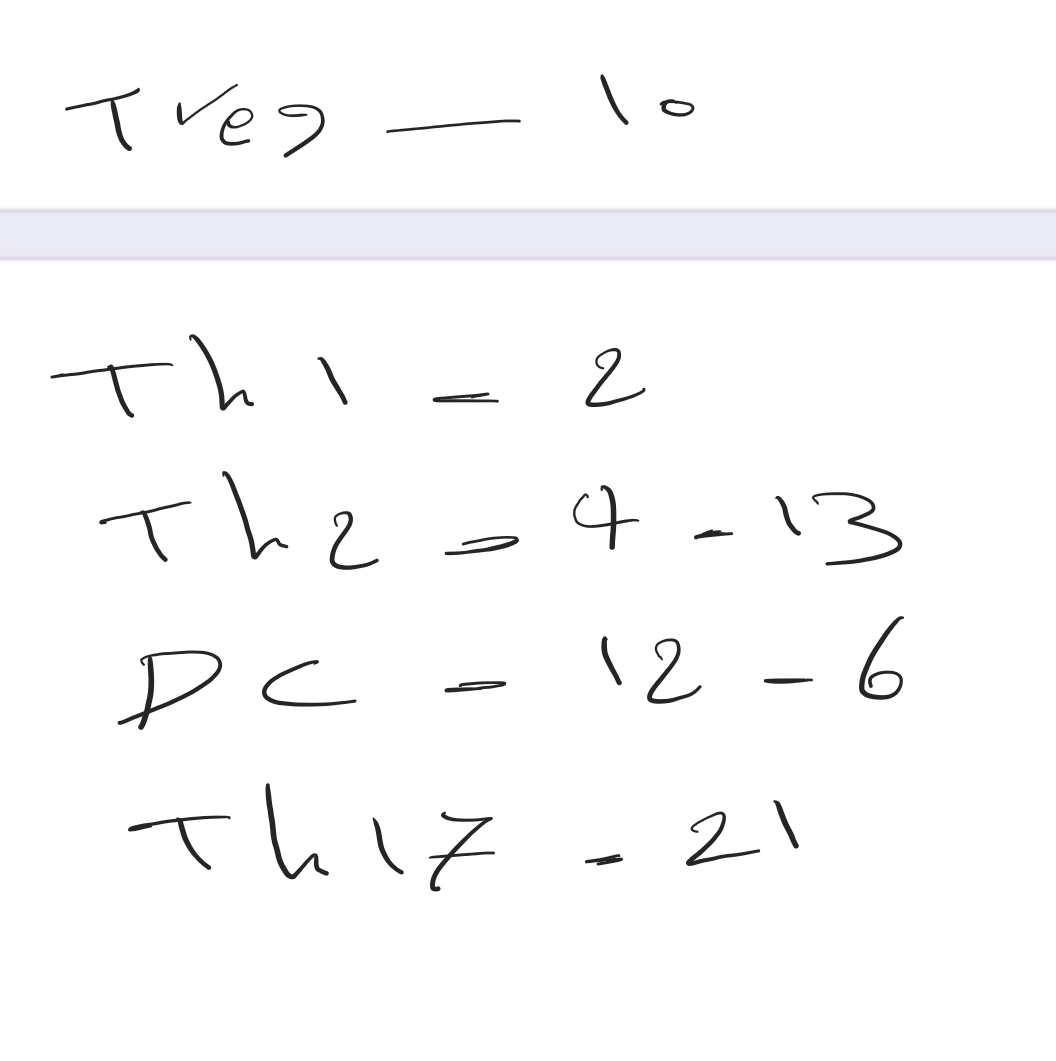 Tres — 10
Th 1 = 2
Th 2 = 4 - 13
DC = 12 - 6
Th 17 = 21